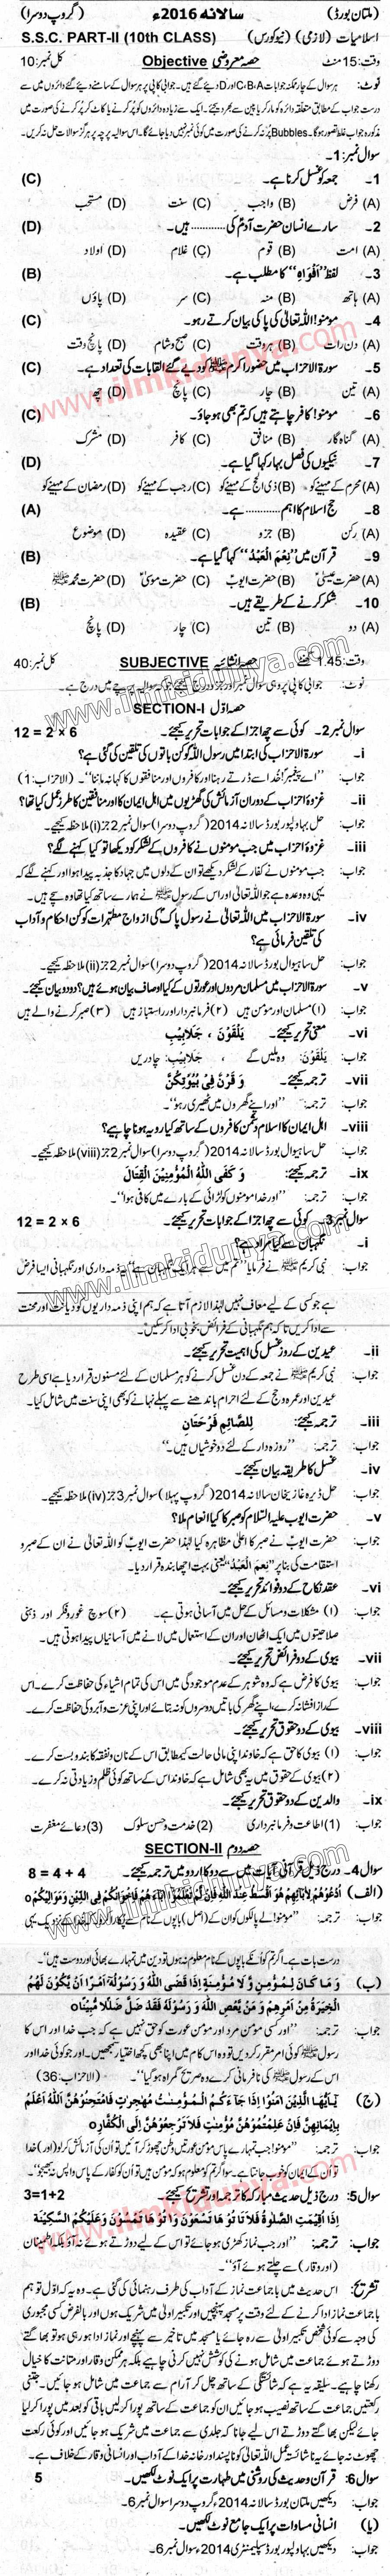 (ملتان بورڈ) سالانہ 2016ء (گروپ دوسرا)
اسلامیات (لازمی) (نیوکورس) S.S.C. PART-II (10th CLASS)
وقت: 15 منٹ حصہ معروضی Objective کل نمبر: 10
نوٹ: ہر سوال کے چار ممکنہ جوابات C، B، A اور D دیئے گئے ہیں۔ جوابی کاپی پر ہر سوال کے سامنے دیئے گئے دائروں میں سے
درست جواب کے مطابق متعلقہ دائرہ کو مارکر یا پین سے بھر دیجئے۔ ایک سے زیادہ دائروں کو پُر کرنے یا کاٹ کر پُر کرنے کی صورت میں
مذکورہ جواب غلط تصور ہوگا۔ Bubbles پُر نہ کرنے کی صورت میں کوئی نمبر نہیں دیا جائے گا۔ اس سوالیہ پرچہ پر ہرگز سوالات حل نہ کریں۔
سوال نمبر: 1۔
1۔ جمعہ کو غسل کرنا ہے۔ (C)
(A) فرض (B) واجب (C) سنت (D) مستحب
2۔ سارے انسان حضرت آدمؑ کی ............ ہیں۔ (D)
(A) امت (B) قوم (C) غلام (D) اولاد
3۔ لفظ "اَفْوَاہِ" کا مطلب ہے۔ (B)
(A) ہاتھ (B) منہ (C) سر (D) پاؤں
4۔ مومنو! اللہ تعالیٰ کی پاکی بیان کرتے رہو۔ (C)
(A) دن رات (B) ہر وقت (C) صبح و شام (D) پانچ وقت
5۔ سورۃ الاحزاب میں حضور اکرم ﷺ کو دیے گئے القابات کی تعداد ہے۔ (C)
(A) تین (B) چار (C) پانچ (D) چھ
6۔ مومنو! کافر چاہتے ہیں کہ تم بھی ہو جاؤ۔ (C)
(A) گناہ گار (B) منافق (C) کافر (D) مشرک
7۔ نیکیوں کی فصل بہار کہا گیا ہے۔ (D)
(A) محرم کے مہینے کو (B) ذی الحج کے مہینے کو (C) رجب کے مہینے کو (D) رمضان کے مہینے کو
8۔ حج اسلام کا اہم ............ ہے۔ (A)
(A) رکن (B) جزو (C) عقیدہ (D) موضوع
9۔ قرآن میں "نِعْمَ الْعَبْدُ" کہا گیا ہے۔ (B)
(A) حضرت عیسیٰؑ (B) حضرت ایوبؑ (C) حضرت موسیٰؑ (D) حضرت محمد ﷺ
10۔ شکر کرنے کے طریقے ہیں۔ (B)
(A) دو (B) تین (C) چار (D) پانچ
وقت: 1.45 گھنٹے حصہ انشائیہ SUBJECTIVE کل نمبر: 40
نوٹ: جوابی کاپی پر وہی سوال نمبر اور جزو درج کیجئے جو کہ سوالیہ پرچے میں درج ہے۔
حصہ اول SECTION-I
سوال نمبر 2۔ کوئی سے چھ اجزا کے جوابات تحریر کیجئے۔ 12 = 2 × 6
i۔ سورۃ الاحزاب کی ابتدا میں رسول اللہ کو کن باتوں کی تلقین کی گئی ہے؟
جواب: "اے پیغمبر! خدا سے ڈرتے رہنا اور کافروں اور منافقوں کا کہا نہ ماننا"۔ (الاحزاب: 1)
ii۔ غزوۂ احزاب کے دوران آزمائش کی گھڑیوں میں اہل ایمان کا اور منافقین کا طرز عمل کیا تھا؟
جواب: حل بہاولپور بورڈ سالانہ 2014 (گروپ دوسرا) سوال نمبر 2 جز (i) ملاحظہ کیجیے۔
iii۔ غزوۂ احزاب میں جب مومنوں نے کافروں کے لشکر کو دیکھا تو کیا کہنے لگے؟
جواب: جب مومنوں نے کفار کے لشکر دیکھے تو ان کے دلوں میں جہاد کا جذبہ پیدا ہوا اور کہنے لگے کہ
یہی وہ وعدہ ہے جو اللہ تعالیٰ اور اس کے رسول ﷺ نے ہمارے ساتھ کیا تھا وہ سچے ہیں۔
iv۔ سورۃ الاحزاب میں اللہ تعالیٰ نے رسول پاکؐ کی ازواج مطہرات کو کن احکام و آداب
کی تلقین فرمائی ہے؟
جواب: حل ساہیوال بورڈ سالانہ 2014 (گروپ دوسرا) سوال نمبر 2 جز (ii) ملاحظہ کیجیے۔
v۔ سورۃ الاحزاب میں مسلمان مردوں اور عورتوں کے کیا اوصاف بیان ہوئے ہیں؟ دو دو بیان کیجئے۔
جواب: (۱) مسلمان اور مومن ہیں (۲) فرمانبردار اور راستباز ہیں (۳) صبر کرنے والے ہیں
vi۔ معنی تحریر کیجئے۔ یَلْقَوْنَ ، جَلَابِیْبِ
جواب: یَلْقَوْنَ: وہ ملیں گے ، جَلَابِیْبِ: چادریں
vii۔ ترجمہ کیجئے۔ وَ قَرْنَ فِیْ بُیُوْتِکُنَّ
جواب: ترجمہ: "اور اپنے گھروں میں ٹھہری رہو"۔
viii۔ اہل ایمان کا اسلام دشمن کافروں کے ساتھ کیا رویہ ہونا چاہیے؟
جواب: حل ساہیوال بورڈ سالانہ 2014 (گروپ دوسرا) سوال نمبر 2 جز (viii) ملاحظہ کیجیے۔
ix۔ ترجمہ کیجئے: وَ کَفَی اللّٰہُ الْمُؤْمِنِیْنَ الْقِتَالَ
جواب: ترجمہ: "اور خدا مومنوں کو لڑائی کے بارے میں کافی ہوا"۔
سوال نمبر 3۔ کوئی سے چھ اجزا کے جوابات تحریر کیجئے۔ 12 = 2 × 6
i۔ نگہبان سے کیا مراد ہے؟
جواب: نبی کریم ﷺ نے فرمایا "تم میں سے ہر ایک نگہبان ہے" ذمہ داری اور نگہبانی ایسا فرض
ہے جو کسی کے لیے معاف نہیں لہٰذا لازم آتا ہے کہ ہم اپنی ذمہ داریوں کو دیانت اور محنت
سے ادا کریں تاکہ ہم نگہبانی کے فرائض بخوبی ادا کر سکیں۔
ii۔ عیدین کے روز غسل کی اہمیت تحریر کیجئے۔
جواب: نبی کریم ﷺ نے جمعہ کے دن غسل کرنے کو ہر مسلمان کے لئے مسنون قرار دیا ہے اسی طرح
عیدین اور عمرہ و حج کے لئے احرام باندھنے سے پہلے نہانے کو بھی اپنی سنت میں شامل کیا۔
iii۔ ترجمہ کیجئے: لِلصَّائِمِ فَرْحَتَانِ
جواب: ترجمہ: "روزہ دار کے لئے دو خوشیاں ہیں۔"
iv۔ غسل کا طریقہ بیان کیجئے۔
جواب: حل ڈیرہ غازیخان سالانہ 2014 (گروپ پہلا) سوال نمبر 3 جز (iv) ملاحظہ کیجیے۔
v۔ حضرت ایوب علیہ السلام کو صبر کا کیا انعام ملا؟
جواب: حضرت ایوبؑ نے صبر کا اعلیٰ مظاہرہ کیا لہٰذا حضرت ایوبؑ کو اللہ تعالیٰ نے ان کے صبر و
استقامت کی بنا پر "نِعْمَ الْعَبْدُ" یعنی بہت اچھا بندہ قرار دیا۔
vi۔ عقد نکاح کے دو فوائد تحریر کیجئے۔
جواب: (۱) مشکلات و مسائل کے حل میں آسانی ہوتی ہے۔ (۲) سوچ غور و فکر اور ذہنی
صلاحیتوں میں ایک اٹھان اور ان کے استعمال میں لانے میں آسانیاں پیدا ہوتی ہیں۔
vii۔ بیوی کے دو فرائض تحریر کیجئے۔
جواب: بیوی کا فرض ہے کہ وہ شوہر کے عدم موجودگی میں اس کی تمام اشیاء کی حفاظت کرے۔ اس
کے راز افشا نہ کرے، اپنے گھر کی باتیں دوسروں کو نہ بتائے اور اپنی عزت و آبرو کی حفاظت کرے۔
viii۔ بیوی کے دو حقوق تحریر کیجئے۔
جواب: (۱) بیوی کا حق ہے کہ خاوند اپنی مالی حالت کے مطابق اس کے نان و نفقہ کا بندوبست کرے۔
(۲) بیوی کے حقوق میں یہ بھی شامل ہے کہ خاوند اس کے ساتھ کوئی ظلم و زیادتی نہ کرے۔
ix۔ والدین کے دو حقوق تحریر کیجئے۔
جواب: (1) اطاعت و فرمانبرداری (2) خدمت و حسن سلوک (3) دعائے مغفرت
حصہ دوم SECTION-II
سوال 4۔ درج ذیل قرآنی آیات میں سے دو کا اردو میں ترجمہ کیجئے۔ 8 = 4 + 4
(الف) اُدْعُوْھُمْ لِاٰبَآئِھِمْ ھُوَ اَقْسَطُ عِنْدَ اللّٰہِ فَاِنْ لَّمْ تَعْلَمُوْٓا اٰبَآءَھُمْ فَاِخْوَانُکُمْ فِی الدِّیْنِ وَمَوَالِیْکُمْ o
جواب: ترجمہ: "مومنو! لے پالکوں کو ان کے (اصل) باپوں کے نام سے پکارا کرو کہ خدا کے نزدیک یہی
درست بات ہے۔ اگر تم کو انکے باپوں کے نام معلوم نہ ہوں تو دین میں تمہارے بھائی اور دوست ہیں"۔
(ب) وَ مَا کَانَ لِمُؤْمِنٍ وَّ لَا مُؤْمِنَۃٍ اِذَا قَضَی اللّٰہُ وَ رَسُوْلُہٗٓ اَمْرًا اَنْ یَّکُوْنَ لَھُمُ
الْخِیَرَۃُ مِنْ اَمْرِھِمْ وَ مَنْ یَّعْصِ اللّٰہَ وَ رَسُوْلَہٗ فَقَدْ ضَلَّ ضَلٰلًا مُّبِیْنًا o
جواب: ترجمہ: "اور کسی مومن مرد اور مومن عورت کو حق نہیں ہے کہ جب خدا اور اس کا
رسول ﷺ کوئی امر مقرر کر دیں تو وہ اس کام میں اپنا بھی کچھ اختیار سمجھیں۔ اور جو کوئی خدا اور
اس کے رسول ﷺ کی نافرمانی کرے وہ صریح گمراہ ہو گیا"۔ (الاحزاب: 36)
(ج) یٰٓاَیُّھَا الَّذِیْنَ اٰمَنُوْٓا اِذَا جَآءَکُمُ الْمُؤْمِنٰتُ مُھٰجِرٰتٍ فَامْتَحِنُوْھُنَّ اَللّٰہُ اَعْلَمُ
بِاِیْمَانِھِنَّ فَاِنْ عَلِمْتُمُوْھُنَّ مُؤْمِنٰتٍ فَلَا تَرْجِعُوْھُنَّ اِلَی الْکُفَّارِ o
جواب: ترجمہ: "مومنو! جب تمہارے پاس مومن عورتیں وطن چھوڑ کر آئیں تو ان کی آزمائش کر لو (اور) خدا
تو ان کے ایمان کو خوب جانتا ہے۔ سو اگر تم کو معلوم ہو کہ مومن ہیں تو ان کو کفار کے پاس واپس نہ بھیجو"۔
سوال 5: درج ذیل حدیث مبارکہ کا ترجمہ اور تشریح کیجئے۔ 3=1+2
اِذَا اُقِیْمَتِ الصَّلٰوۃُ فَلَا تَاْتُوْھَا تَسْعَوْنَ وَاْتُوْھَا تَمْشُوْنَ وَعَلَیْکُمُ السَّکِیْنَۃَ
جواب: ترجمہ: "اور جب نماز کھڑی ہو جائے تو اس کے لیے دوڑتے ہوئے نہ آؤ بلکہ اطمینان
(اور وقار) سے چلتے ہوئے آؤ"۔
تشریح: اس حدیث میں باجماعت نماز کے آداب کی طرف رہنمائی کی گئی ہے۔ وہ یہ کہ اول تو ہم
باجماعت نماز ادا کرنے کے لئے وقت پر مسجد پہنچیں اور تکبیر اولیٰ میں شریک ہوں اور بالفرض کسی مجبوری
کی وجہ سے کوئی شخص تکبیر اولیٰ سے رہ جائے یا مسجد میں تاخیر سے پہنچے اور نماز ادا ہو رہی ہو تو بھاگتے
دوڑتے ہوئے جماعت میں شامل ہونے کی کوشش نہیں کرنی چاہیے بلکہ ہر ممکن وقار اور متانت کا خیال
رکھنا چاہیے۔ سلیقہ یہ ہے کہ شائستگی کے ساتھ چل کر آرام سے جماعت میں شامل ہو جائیں۔ جتنی
رکعتیں جماعت کے ساتھ نصیب ہو جائیں ان کو جماعت کے ساتھ پورا کر لیں باقی کو بعد میں پورا کر لیا
جائے لیکن بھاگتے دوڑتے اس لیے جانا کہ جلدی سے جماعت میں شریک ہو جائیں اور کوئی رکعت
چھوٹ نہ جائے یہ ناشائستہ عمل اللہ تعالیٰ کو ناپسند اور خانہ خدا کے آداب اور انسانی وقار کے خلاف ہے۔
سوال 6: قرآن و حدیث کی روشنی میں طہارت پر ایک نوٹ لکھیں۔ 5
جواب: دیکھیں ملتان بورڈ سالانہ 2014ء گروپ دوسرا سوال نمبر 6۔
(یا) انسانی مساوات پر ایک جامع نوٹ لکھیں۔
جواب: دیکھیں بہاولپور بورڈ سپلیمنٹری 2014ء سوال نمبر 6۔
www.ilmkidunya.com